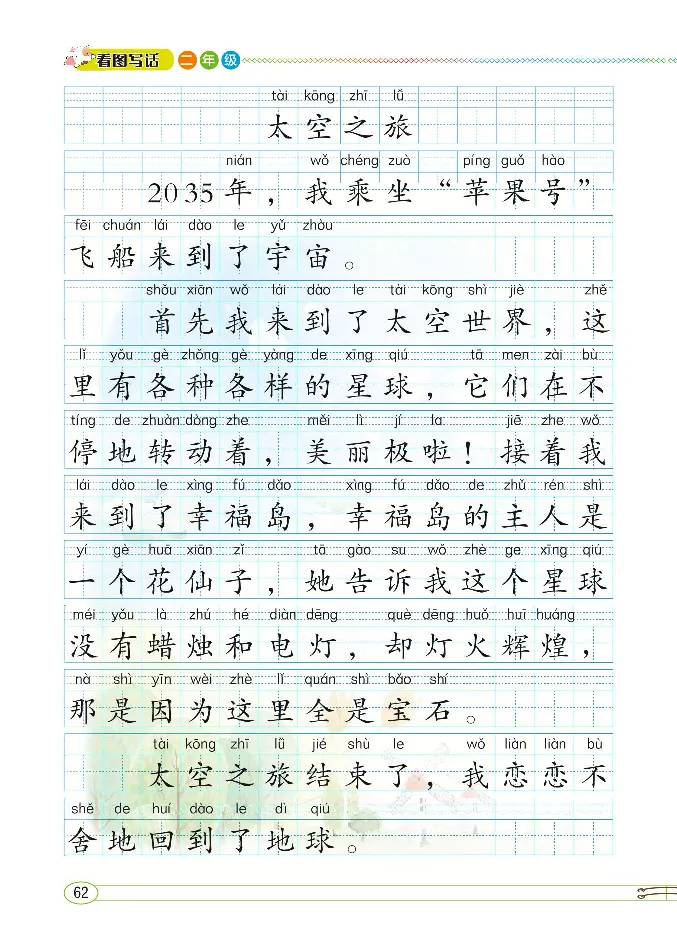 看图写话 二年级
tài kōng zhī lǚ
太空之旅
nián wǒ chéng zuò píng guǒ hào
2035年，我乘坐“苹果号”
fēi chuán lái dào le yǔ zhòu
飞船来到了宇宙。
shǒu xiān wǒ lái dào le tài kōng shì jiè zhě
首先我来到了太空世界，这
lǐ yǒu gè zhǒng gè yàng de xīng qiú tā men zài bù
里有各种各样的星球，它们在不
tíng de zhuàn dòng zhe měi lì jí la jiē zhe wǒ
停地转动着，美丽极啦！接着我
lái dào le xìng fú dǎo xìng fú dǎo de zhǔ rén shì
来到了幸福岛，幸福岛的主人是
yí gè huā xiān zǐ tā gào su wǒ zhè ge xīng qiú
一个花仙子，她告诉我这个星球
méi yǒu là zhú hé diàn dēng què dēng huǒ huī huáng
没有蜡烛和电灯，却灯火辉煌，
nà shì yīn wèi zhè lǐ quán shì bǎo shí
那是因为这里全是宝石。
tài kōng zhī lǚ jié shù le wǒ liàn liàn bù
太空之旅结束了，我恋恋不
shě de huí dào le dì qiú
舍地回到了地球。
62